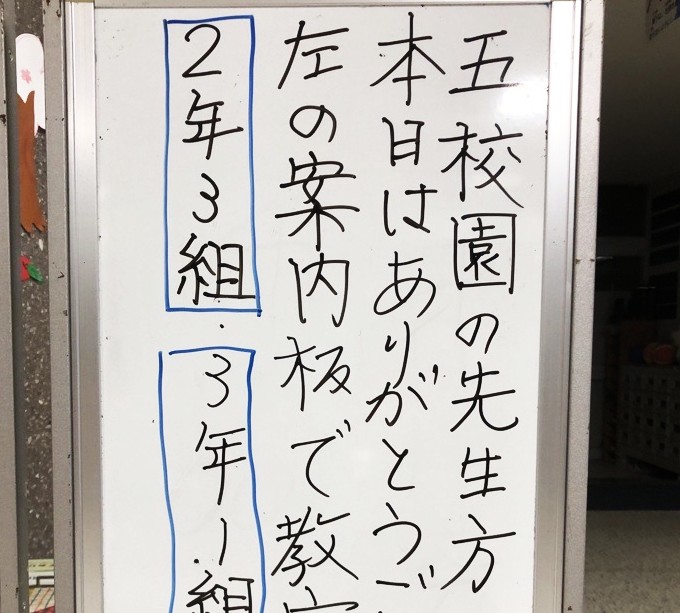 五校園の先生方
本日はありがとうご
左の案内板で教室
2年3組
3年1組